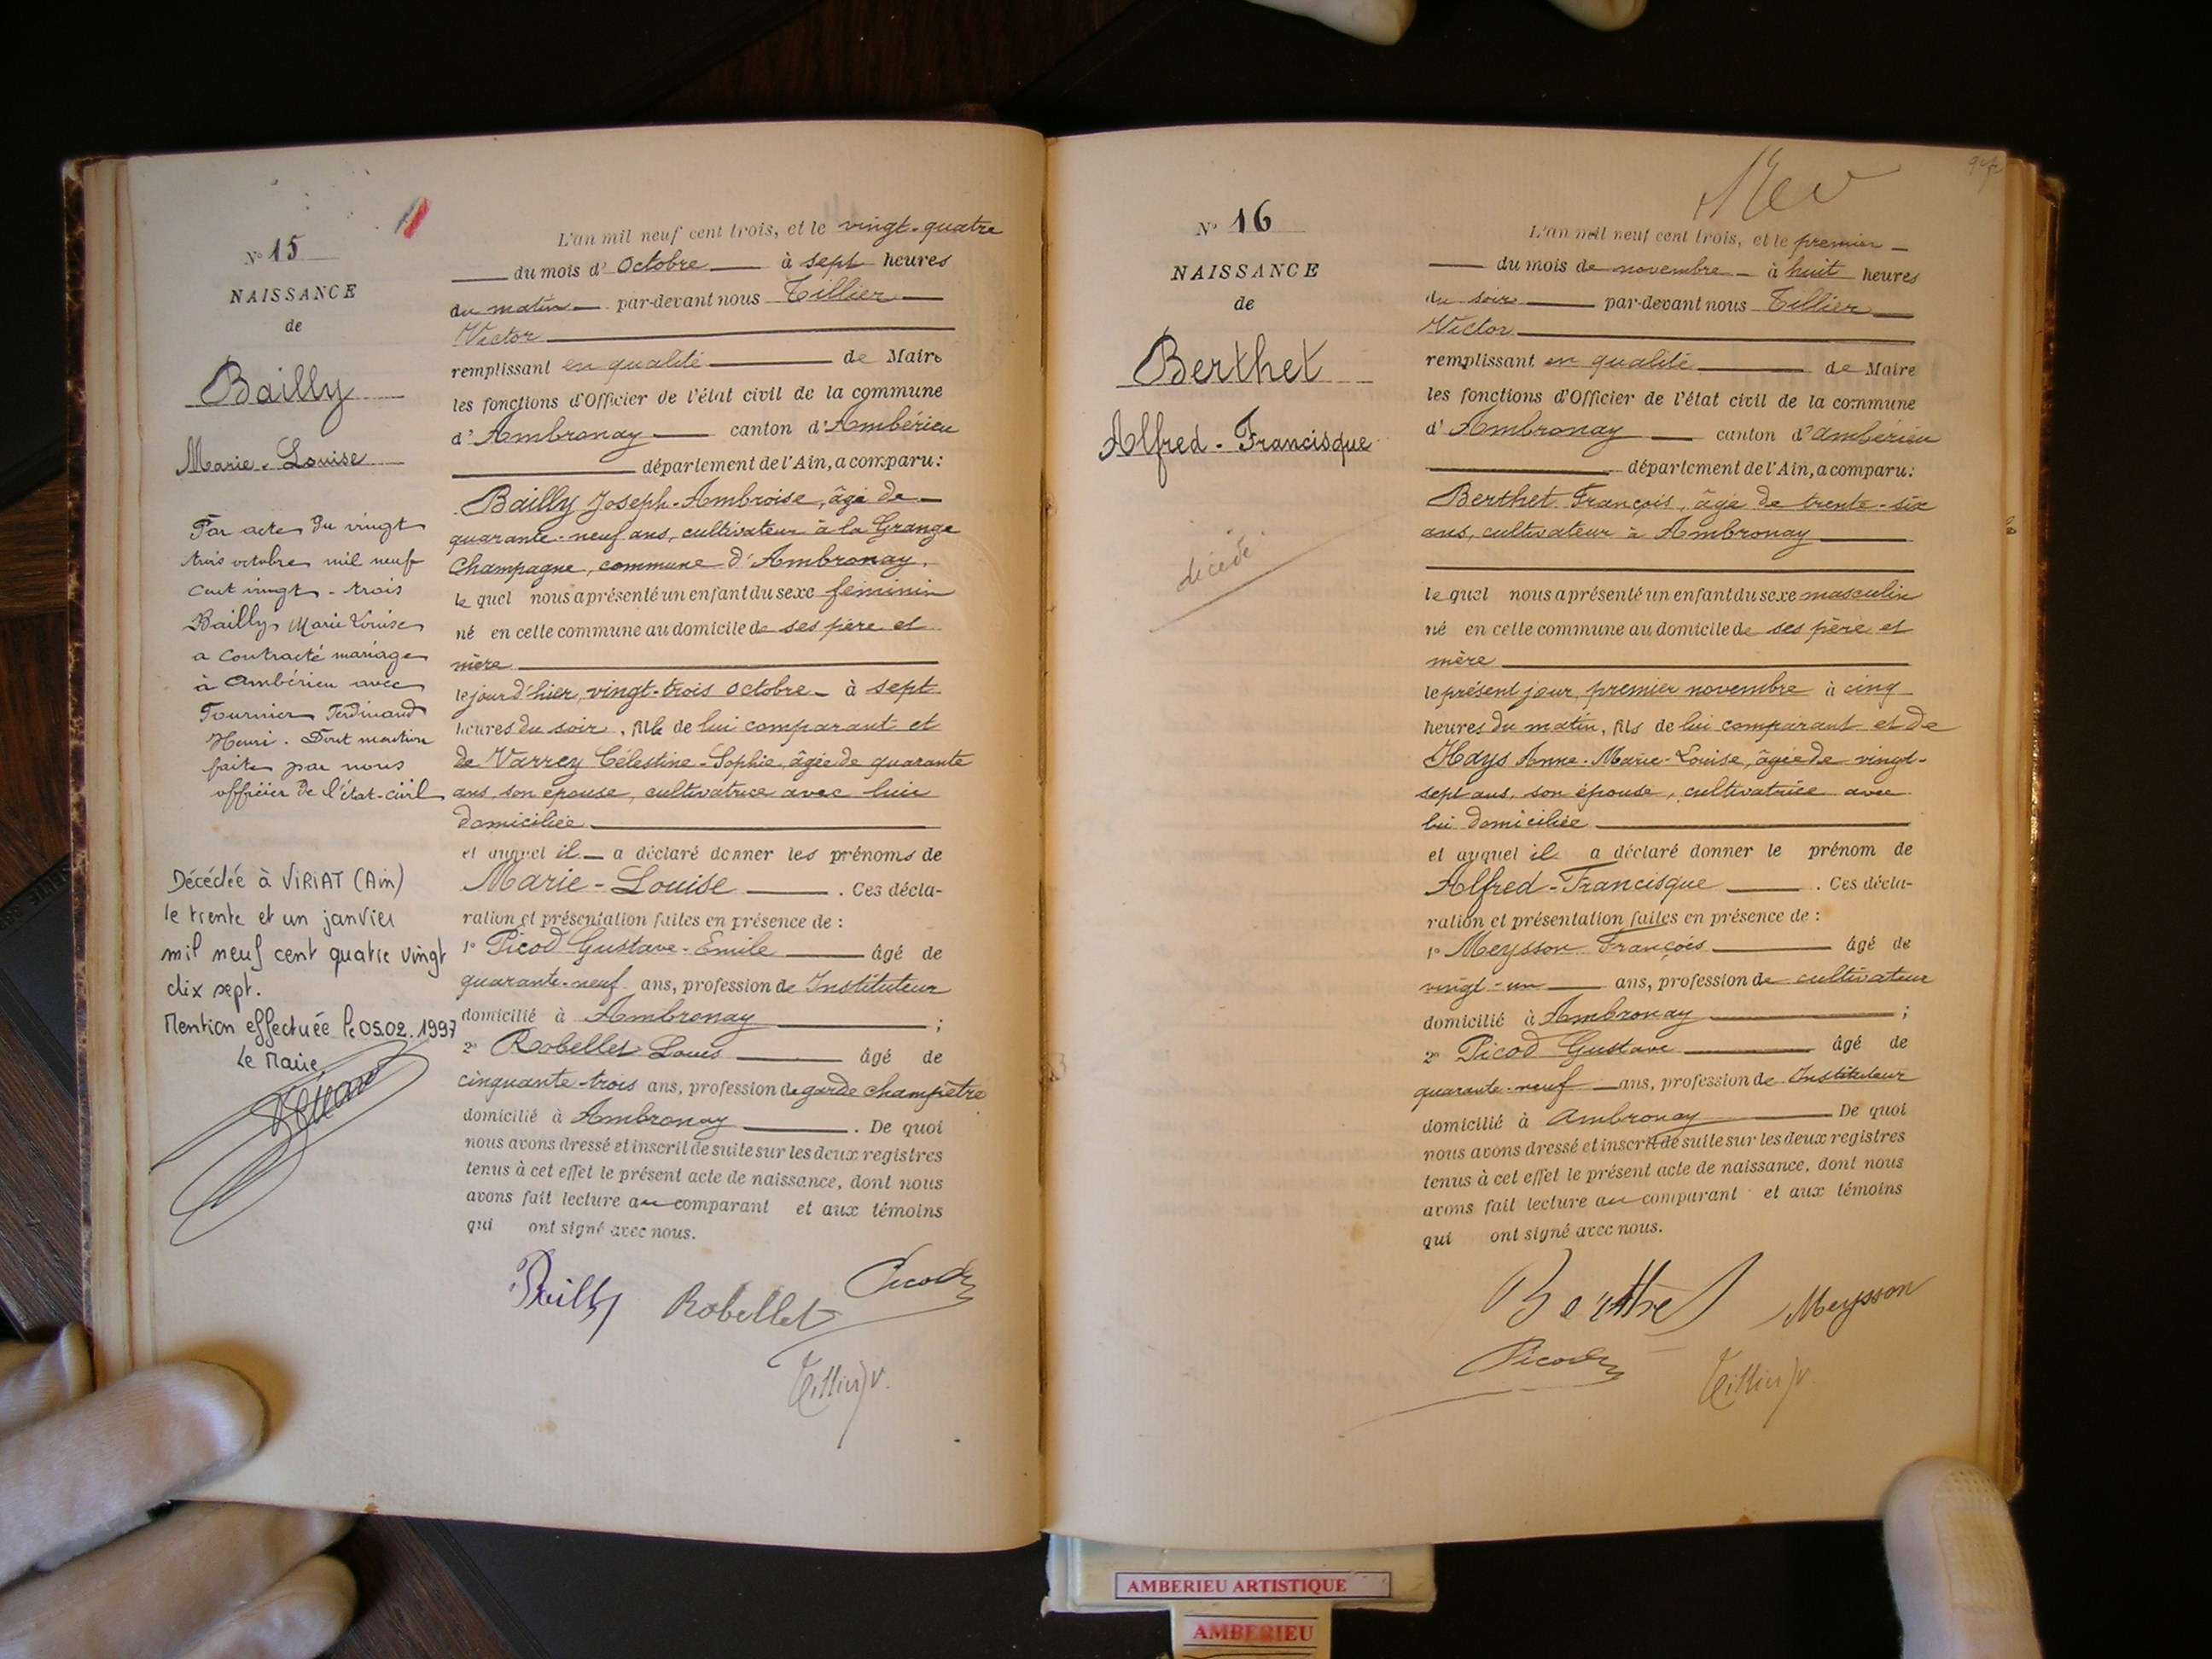 Nº 15
NAISSANCE
de
Bailly
Marie-Louise
Par acte du vingt
trois octobre mil neuf
cent vingt-trois
Bailly Marie Louise
a contracté mariage
à Ambérieu avec
Fournier Ferdinand
Henri. Dont mention
faite par nous
officier de l'état-civil
Décédée à VIRIAT (Ain)
le trente et un janvier
mil neuf cent quatre vingt
dix sept.
Mention effectuée le 05.02.1997
Le Maire,
L'an mil neuf cent trois, et le vingt-quatre
du mois d'Octobre à sept heures
du matin par-devant nous Tillier
Victor
remplissant en qualité de Maire
les fonctions d'Officier de l'état civil de la commune
d'Ambronay canton d'Ambérieu
département de l'Ain, a comparu:
Bailly Joseph-Ambroise, âgé de
quarante-neuf ans, cultivateur à la Grange
Champagne, commune d'Ambronay.
le quel nous a présenté un enfant du sexe féminin
né en cette commune au domicile de ses père et
mère
le jour d'hier, vingt-trois octobre à sept
heures du soir, fille de lui comparant et
de Varrey Célestine-Sophie, âgée de quarante
ans, son épouse, cultivatrice avec lui
domiciliée
et auquel il a déclaré donner les prénoms de
Marie-Louise. Ces décla-
ration et présentation faites en présence de :
1º Picod Gustave-Emile âgé de
quarante-neuf ans, profession de Instituteur
domicilié à Ambronay ;
2º Robellet Louis âgé de
cinquante-trois ans, profession de garde champêtre
domicilié à Ambronay. De quoi
nous avons dressé et inscrit de suite sur les deux registres
tenus à cet effet le présent acte de naissance, dont nous
avons fait lecture au comparant et aux témoins
qui ont signé avec nous.
Bailly Robellet Picod
Tillier V.
Nº 16
NAISSANCE
de
Berthet
Alfred-Francisque
décédé.
L'an mil neuf cent trois, et le premier
du mois de novembre à huit heures
du soir par-devant nous Tillier
Victor
remplissant en qualité de Maire
les fonctions d'Officier de l'état civil de la commune
d'Ambronay canton d'Ambérieu
département de l'Ain, a comparu:
Berthet François, âgé de trente-six
ans, cultivateur à Ambronay
le quel nous a présenté un enfant du sexe masculin
né en cette commune au domicile de ses père et
mère
le présent jour, premier novembre à cinq
heures du matin, fils de lui comparant et de
Hays Anne-Marie-Louise, âgée de vingt-
sept ans, son épouse, cultivatrice avec
lui domiciliée
et auquel il a déclaré donner le prénom de
Alfred-Francisque. Ces décla-
ration et présentation faites en présence de :
1º Meysson François âgé de
vingt-un ans, profession de cultivateur
domicilié à Ambronay ;
2º Picod Gustave âgé de
quarante-neuf ans, profession de Instituteur
domicilié à Ambronay De quoi
nous avons dressé et inscrit de suite sur les deux registres
tenus à cet effet le présent acte de naissance, dont nous
avons fait lecture au comparant et aux témoins
qui ont signé avec nous.
Berthet Meysson
Picod Tillier V.
AMBERIEU ARTISTIQUE
AMBERIEU